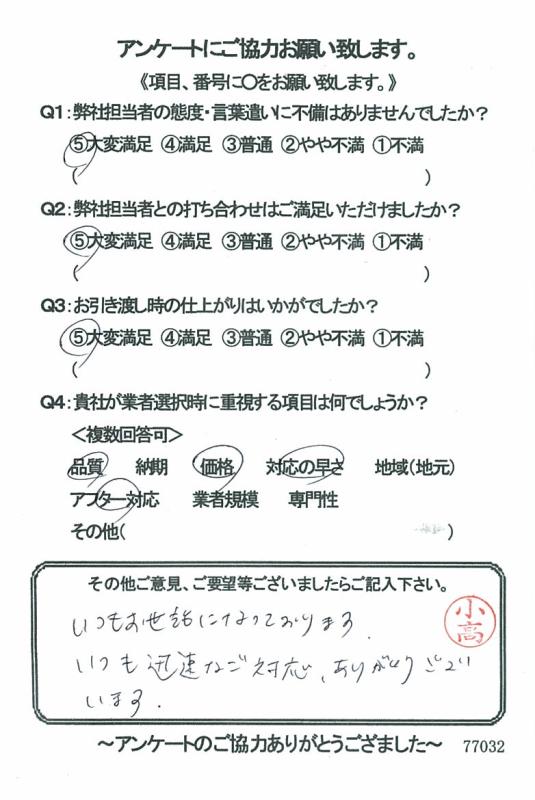 アンケートにご協力お願い致します。
《項目、番号に○をお願い致します。》
Q1:弊社担当者の態度・言葉遣いに不備はありませんでしたか?
⑤大変満足 ④満足 ③普通 ②やや不満 ①不満
( )
Q2:弊社担当者との打ち合わせはご満足いただけましたか?
⑤大変満足 ④満足 ③普通 ②やや不満 ①不満
( )
Q3:お引き渡し時の仕上がりはいかがでしたか?
⑤大変満足 ④満足 ③普通 ②やや不満 ①不満
( )
Q4:貴社が業者選択時に重視する項目は何でしょうか?
<複数回答可>
品質 納期 価格 対応の早さ 地域(地元)
アフター対応 業者規模 専門性
その他( )
その他ご意見、ご要望等ございましたらご記入下さい。
いつもお世話になっております.
小高
いつも迅速なご対応、ありがとうござい
います.
~アンケートのご協力ありがとうござました~ 77032